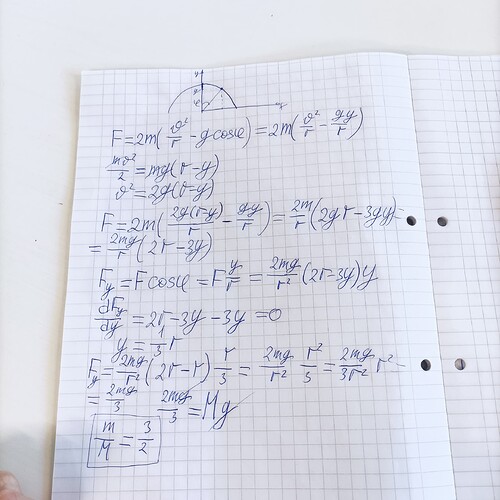 y
φ
x
F = 2m(ϑ²/r − g cosφ) = 2m(ϑ²/r − gy/r)
mϑ²/2 = mg(r − y)
ϑ² = 2g(r − y)
F = 2m(2g(r−y)/r − gy/r) = 2m/r (2gr − 3gy) =
= 2mg/r (2r − 3y)
F_y = F cosφ = F y/r = 2mg/r² (2r − 3y)y
dF_y/dy = 2r − 3y − 3y = 0
y = 1/3 r
F_y = 2mg/r² (2r − r) r/3 = 2mg/r² r²/3 = 2mg/3r² r² =
= 2mg/3 2mg/3 = Mg
m/M = 3/2